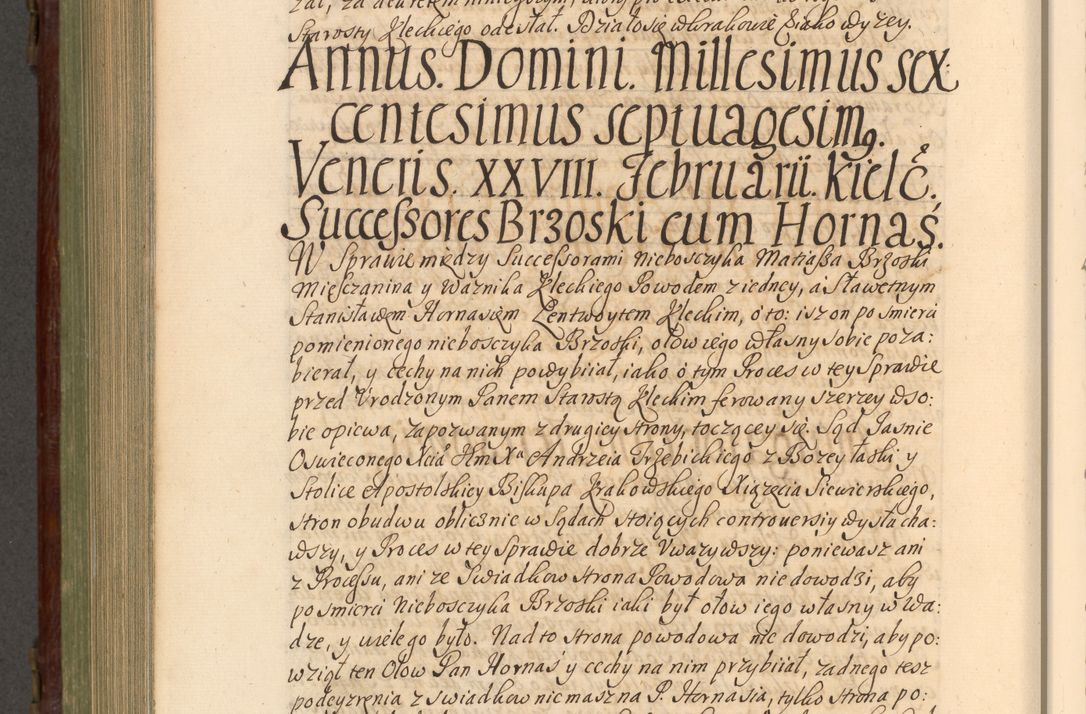 Starosty Kleckiego odesłał. Działo się w Krakowie iako wyzey.
Annus. Domini. Millesimus sex:
centesimus septuagesimꝯ.
Veneris. XXVIII. Februarii. Kielc̊.
Successores Brzoski cum Hornaś.
W Sprawie między Successorami Nieboszczyka Matiassa Brzoski
Miesczanina y Waznika Kleckiego Powodem z iedney, a Sławetnym
Stanisławem Hornasiem Lentwoytem Kleckim, o to: isz on po smierci
pomienionego nieboszczyka Brzoski, ołow iego własny sobie poza:
bierał, y cechy na nich powybiiał, iako o tym Proces w tey Sprawie
przed Urodzonym Panem Starostą Kleckim ferowany szerzey w so:
bie opiewa, zapozwanym z drugiey strony, toczącey się. Sąd Jasnie
Oswieconego Xcia Hm Xa Andrzeia Trzebickiego z Bozey łaski y
Stolice Apostolskiey Biskupa Krakowskiego Xiązęcia Siewierskiego,
stron obudwu oblicznie w Sądach stoiących controversiy wysłucha:
wszy, y Proces w tey Sprawie dobrze Uwazywszy: poniewasz ani
z Processu, ani ze Swiadkow strona Powodowa nie dowodzi, aby
po smierci Nieboszczyka Brzoski iaki był ołow iego własny w Wa:
dze, y wiele go było. Nad to strona powodowa nie dowodzi, aby po:
wziął ten Ołow Pan Hornaś y cechy na nim przybiiał, zadnego tesz
podeyzrenia z swiadkow nie masz na P. Hornasia, tylko strona po: